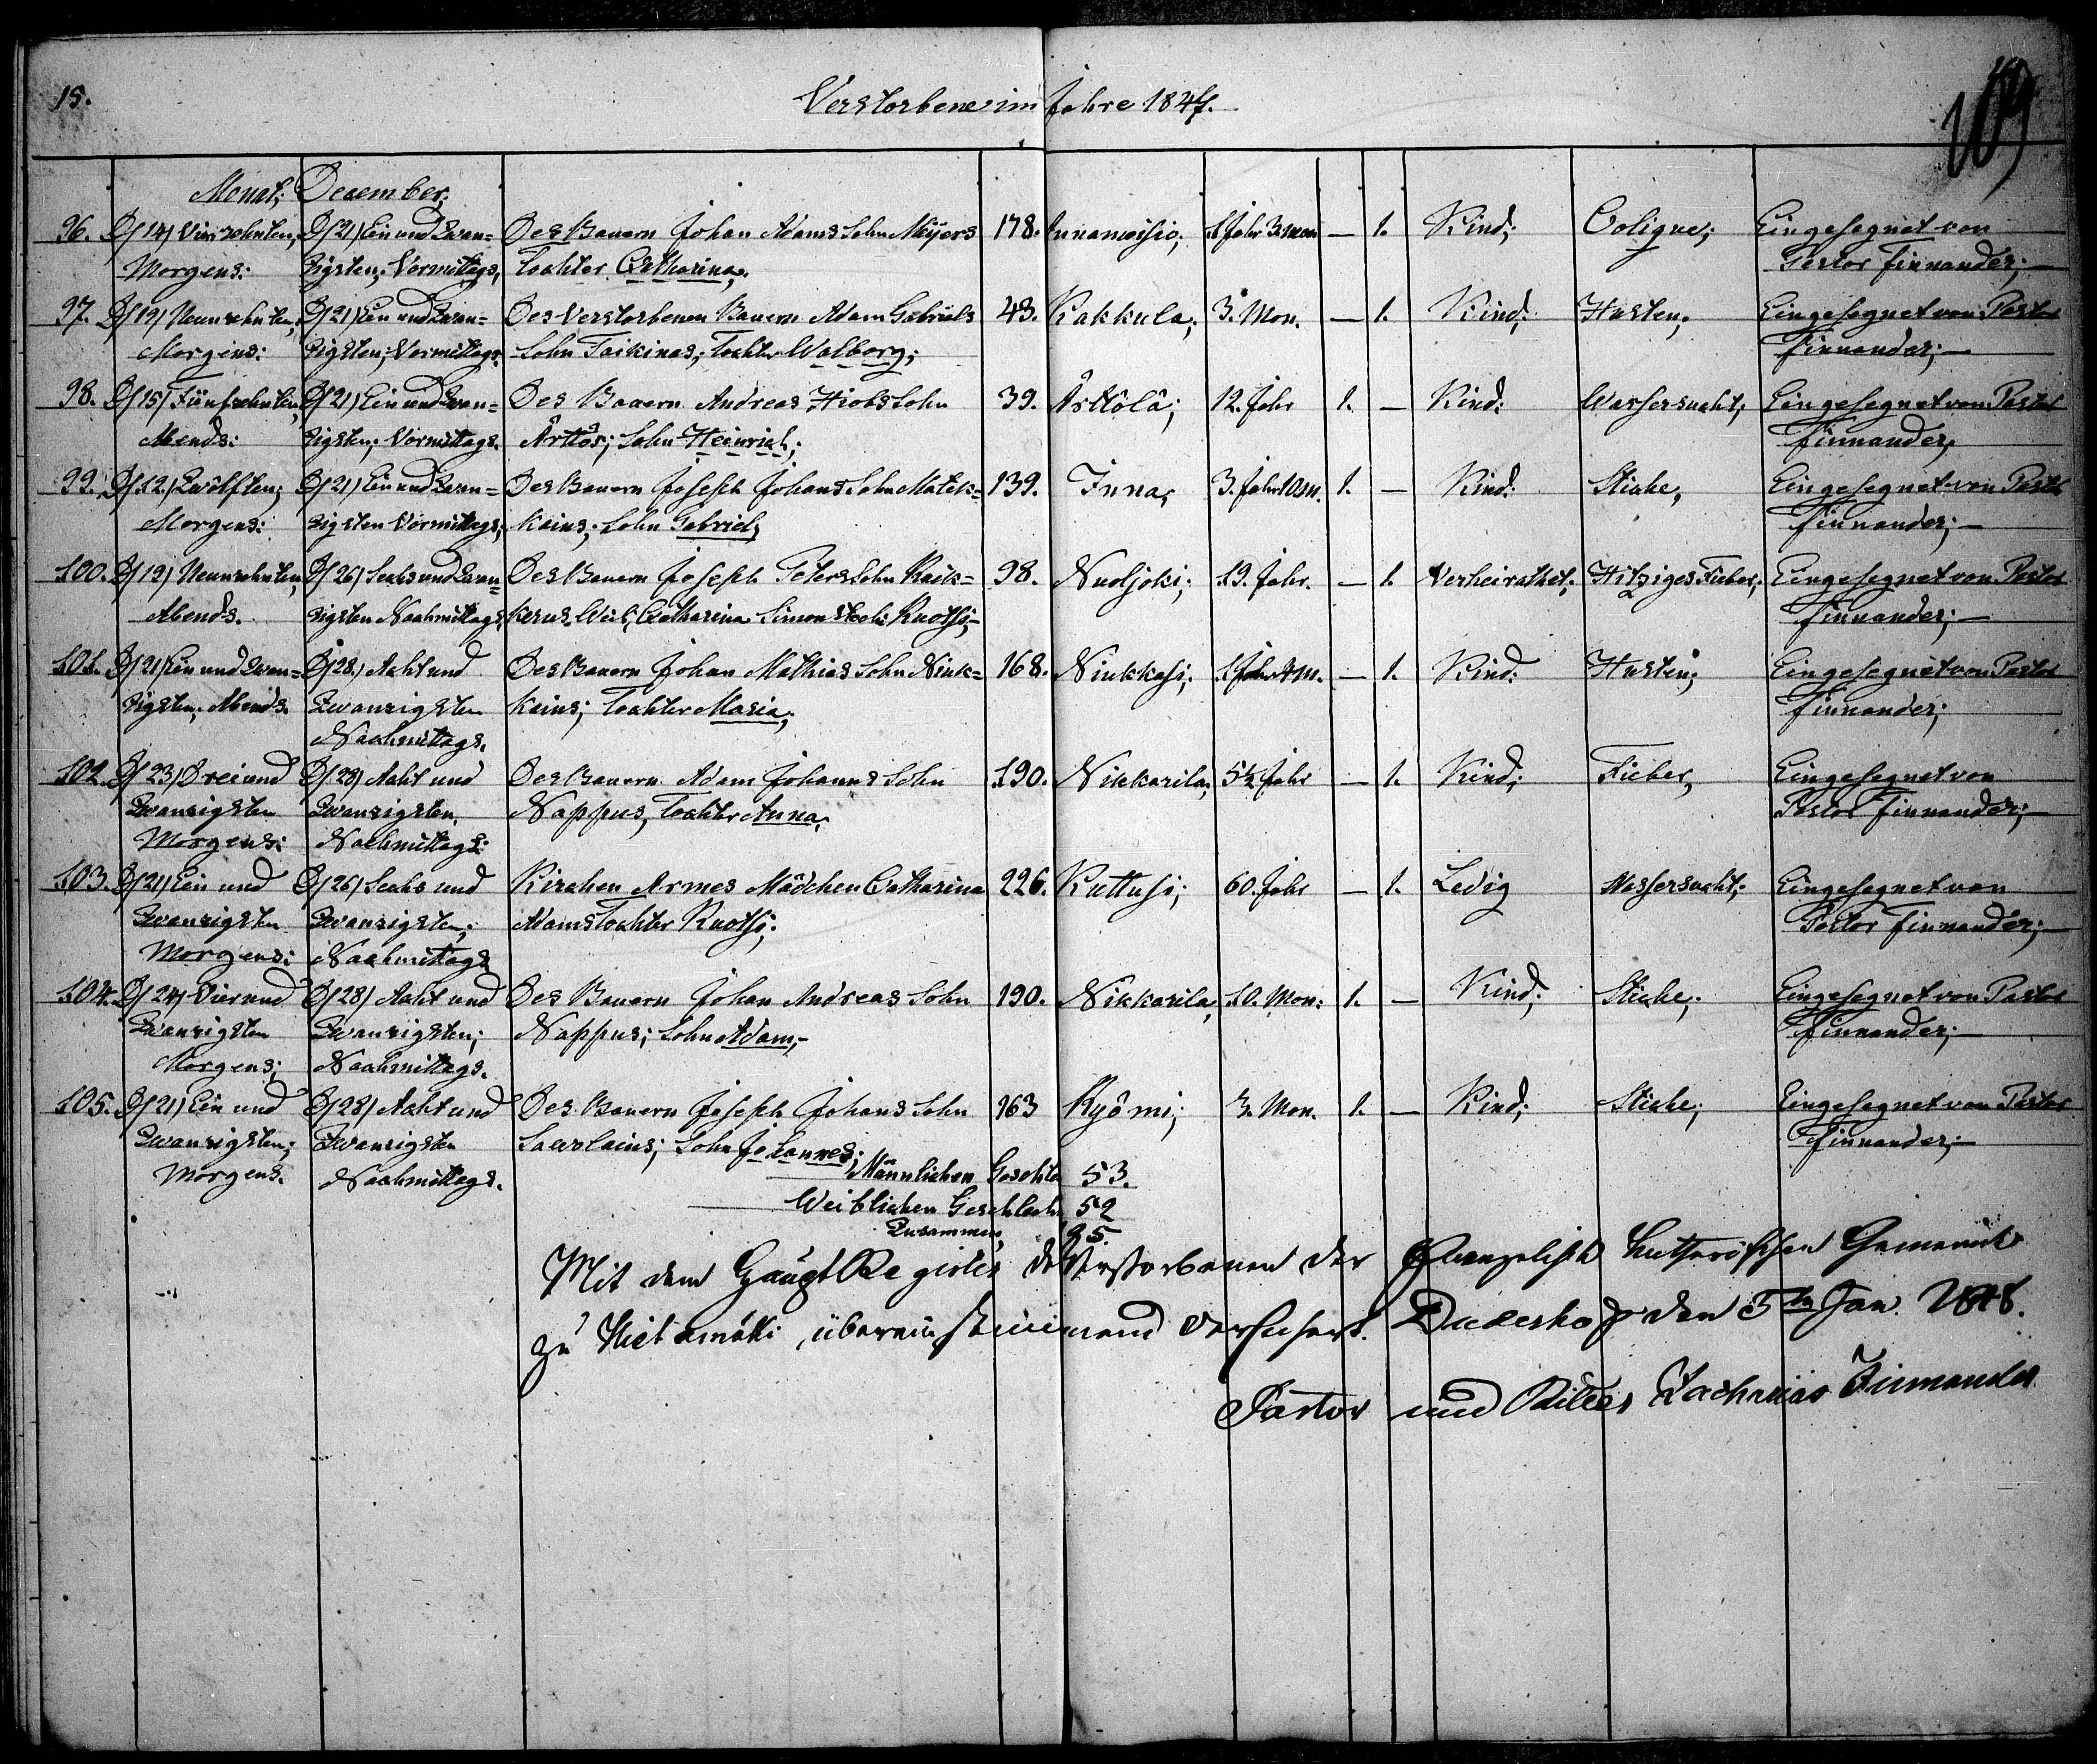 15.
Verstorbene im Jahre 1847.
109
Monat; December;
96. D/14/ Vierzehnten, D/21/ Ein und Zwan= Des Bauern Johan Adams Sohn Meijers 178. 1 Jahr 3 mon — 1. Kind; Coligne; Eingesegnet von
Morgens: zigsten; Vormittags, Tochter Catharina, Pastor Finnander; —
97. D/19/ Neunzehnten, D/21/ Ein und Zwan= Des Verstorbenen Bauern Adam Gabriels 43. Kakkula; 3. Mon. — 1. Kind; Husten; Eingesegnet von Pastor
Morgens: zigsten; Vormittags. Sohn Taikinas; Tochter Walborg; Finnander; —
98. D/15/ Fünfzehnten, D/21/ Ein und Zwan= Des Bauern Andreas Hiobs Sohn 39. 12. Jahr 1. — Kind: Wassersucht; Eingesegnet von Pastor
Abends: zigsten; Vormittags. Sohn Heinrich; Finnander,
99. D/12./ Zwölften; D/21/ Ein und Zwan= Des Bauern Joseph Johans Sohn Matik= 139. Inna, 3. Jahr 10 m. 1. — Kind: Stiche, Eingesegnet von Pastor
Morgens: zigsten Vormittags; kains; Sohn Gabriel; Finnander; —
100. D/19/ Neunzehnten, D/26/ Sechs und Zwan= Des Bauern Joseph Peters Sohn Raik= 98. Nuoljoki; 19. Jahr. — 1. Verheirathet; Hitziges Fieber, Eingesegnet von Pastor
Abends. zigsten Nachmittags, kerus Weib, Catharina Simons toch: Ruotsi; — Finnander; —
101. D/21/ Ein und Zwan= D/28./ Acht und Des Bauern Johan Mathias Sohn Niuk= 168. Niukkasi; 1 Jahr 4 m. — 1. Kind: Husten; Eingesegnet von Pastor
zigsten, Abends. Zwanzigsten kains; Tochter Maria; Finnander;
Nachmittags.
102. D/23/ Drei und D/28/ Acht und Des Bauern Adam Johanns Sohn 190. Nikkarila, 5½ Jahr — 1. Kind; Fieber, Eingesegnet von
Zwanzigsten Zwanzigsten, Nappus, Tochter Anna, Pastor Finnander; —
Morgens: Nachmittags:
103. D/21/ Ein und D/26/ Sechs und Kirchen Armes Mädchen Catharina 226. Kuttusi; 60. Jahr — 1. Ledig Wassersucht; Eingesegnet von
Zwanzigsten Zwanzigsten; Adams Tochter Ruotsi; Pastor Finnander; —
Morgens: Nachmittags
104. D/24/ Vier und D/28/ Acht und Des Bauern Johan Andreas Sohn 190. Nikkarila, 10. Mon: 1. — Kind; Stiche; Eingesegnet von Pastor
Zwanzigsten Zwanzigsten; Nappus; Sohn Adam; — Finnander; —
Morgens; Nachmittags.
105. D/21/ Ein und D/28/ Acht und Des Bauern Joseph Johans Sohn 163 Kyömi; 3. Mon. 1. — Kind; Stiche; Eingesegnet von Pastor
Zwanzigsten; Zwanzigsten Sawolains; Sohn Johannes; Finnander; —
Morgens. Nachmittags.
Männlichen Geschlch 53.
Weiblichen Geschlech 52
Zusammen,
Mit dem Haupt Register der Verstorbenen der Evangelisch Lutherischen Gemeinde
zu Hietamäki übereinstimmend versichert. Duderhof den 5ten Jan. 1848.
Pastor und Ritter Zacharias Finnander